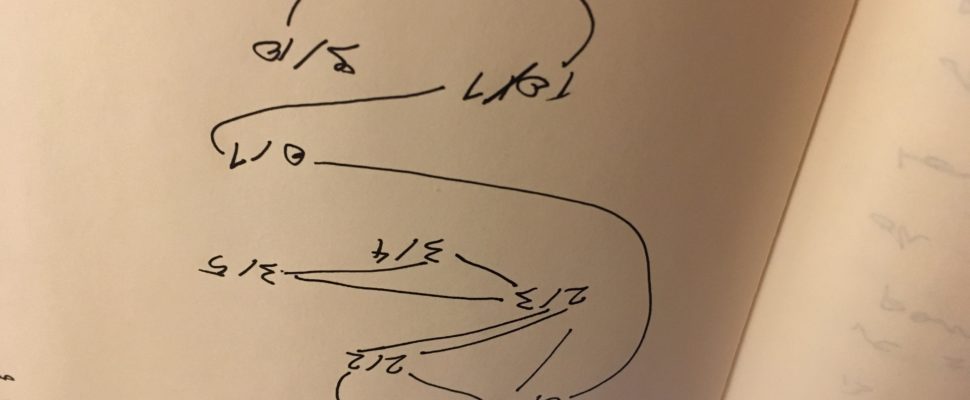 2/2
2/3
3/5
3/4
0/1
10/1
9/10